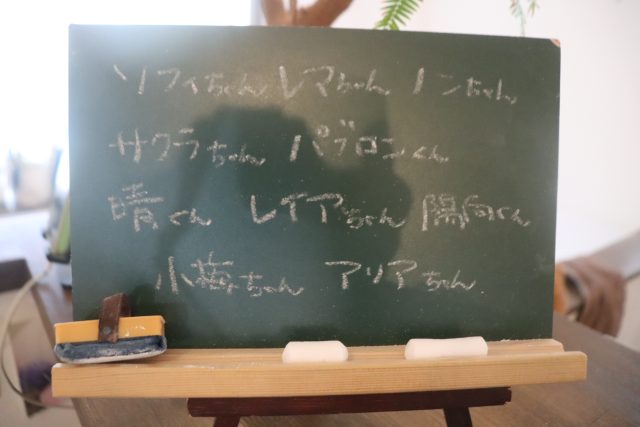 ソフィちゃん レマちゃん ノンちゃん
サクラちゃん パブロンくん
晴くん レイアちゃん 陽向くん
小梅ちゃん アリアちゃん